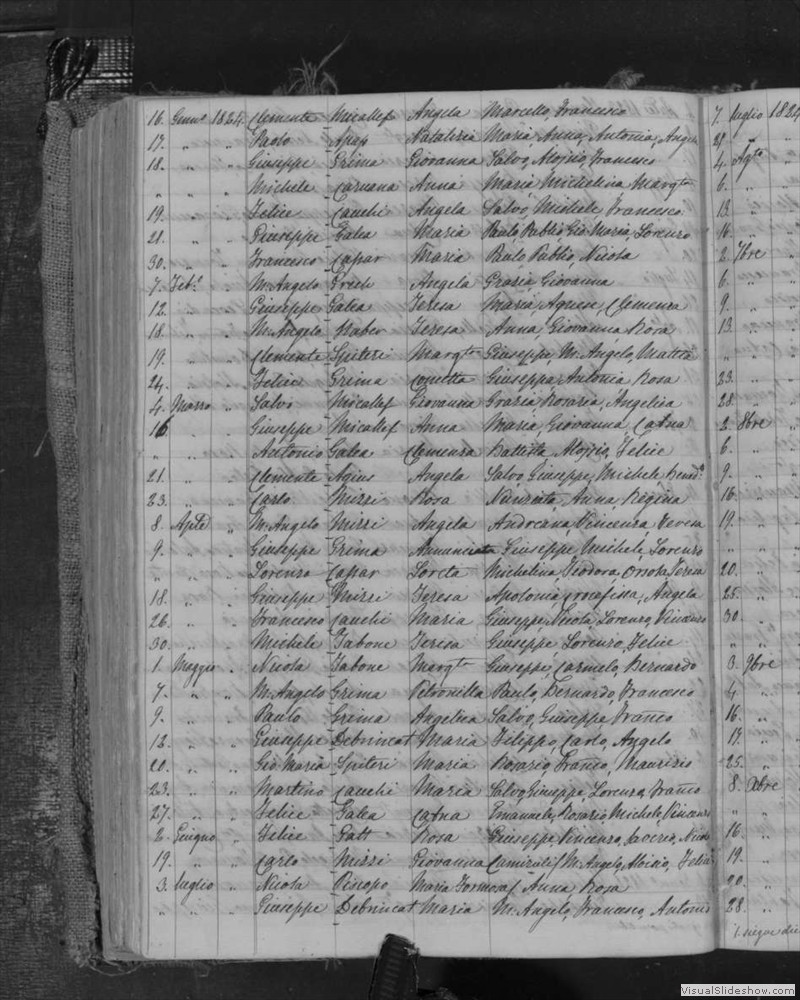 16. Genn° 1824 Clemente Micallef Angela Marcello, Francesco
17. „ „ Paolo Apap Natalizia Maria, Anna, Antonia, Angela
18. „ „ Giuseppe Grima Giovanna Salvo, Aloisio, Francesco
„ „ „ Michele Caruana Anna Maria Michelina Margta
19. „ „ Felice Cauchi Angela Salvo, Michele, Francesco
21. „ „ Giuseppe Galea Maria Paolo Publio, Gio Maria, Lorenzo
30. „ „ Francesco Capar Maria Paolo Publio, Nicola
7. Feb° „ M. Angelo Grech Angela Grazia, Giovanna
12. „ „ Giuseppe Galea Teresa Maria Agnese, Clemenza
18. „ „ M. Angelo Teresa Anna, Giovanna Rosa
19. „ „ Clemente Spiteri Margta Giuseppe, M. Angelo, Matteo
24. „ „ Felice Grima Concetta Giuseppa Antonia Rosa
4. Marzo „ Salvo Micallef Giovanna Grazia, Rosaria, Angelica
16 „ „ Giuseppe Micallef Anna Maria, Giovanna, Catna
„ „ „ Antonio Galea Clemenza Battista, Aloisio, Felice
21. „ „ Clemente Agius Angela Salvo Giuseppe, Michele
23. „ „ Carlo Mizzi Rosa Nunziata, Anna, Regina
8. Aple „ M. Angelo Mizzi Angela Andreana, Vincenza, Teresa
9. „ „ Giuseppe Grima Annunciata Giuseppe, Michele, Lorenzo
„ „ „ Lorenzo Capar Loreta Michelina, Teodora, Orsola Teresa
18. „ „ Giuseppe Mizzi Teresa Apolonia, Crocifissa, Angela
26. „ „ Francesco Cauchi Maria Giuseppe, Nicola, Lorenzo, Vincenzo
30. „ „ Michele Tabone Teresa Giuseppe, Lorenzo, Felice
1. Maggio „ Nicola Tabone Margta Giuseppe, Carmelo, Bernardo
7. „ „ M. Angelo Grima Petronilla Paulo, Bernardo, Francesco
9. „ „ Paulo Grima Angelica Salvo, Giuseppe, Franco
12. „ „ Giuseppe Debrincat Maria Filippo, Carlo, Angelo
20. „ „ Gio Maria Spiteri Maria Rosario, Franco, Maurizio
23. „ „ Martino Cauchi Maria Salvo, Giuseppe, Lorenzo, Franco
27. „ „ Felice Galea Catna Emanuele, Rosario, Michele, Vincenzo
2. Giugno „ Felice Gatt Rosa Giuseppe, Vincenzo, Saverio, Nicola
19. „ „ Carlo Mizzi Giovanna M. Angelo, Aloisio, Felice
3. luglio „ Nicola Piscopo Maria Formosa Anna Rosa
„ „ „ Giuseppe Debrincat Maria M. Angelo, Francesco, Antonio
7. luglio 1824
21. „
4. Agto
6. „
13. „
16. „
2. 7bre
6. „
9. „
13. „
„ „
23. „
28. „
2. 8bre
6. „
9. „
16. „
19. „
„ „
20. „
25. „
30. „
„ „
3. 9bre
4 „
16. „
17. „
25. „
8. Xbre
„ „
16. „
19. „
20. „
28. „
VisualSlideshow.com